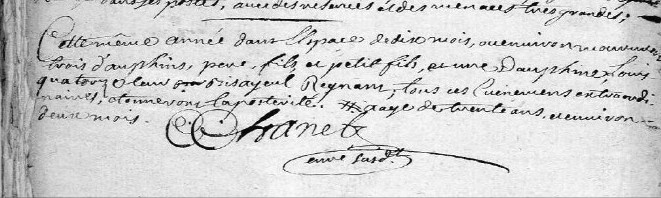 dans ses postes, avec des reserves et des menaces tres grandes,
Cette même année dans l'Espace de dix mois, ou environ mourrurent
trois dauphins, pere, fils, et petit fils, et une Dauphine Louis
quatorze leur Bisayeul Regnant, tous ces Evenemens extraordi
naires, etonneront la posterité. # aagé de trente ans, et environ
deux mois.
Chanet
curé susd.t